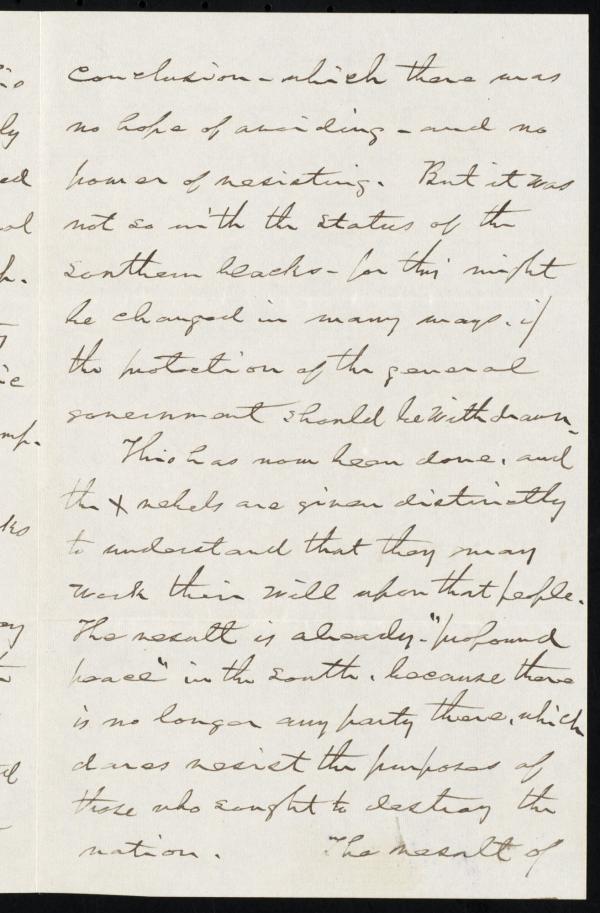 conclusion - which there was
no hope of avoiding - and no
power of resisting. But it was
not so with the status of the
southern blacks - for this might
be changed in many ways. if
the protection of the general
government should be withdrawn.
This has now been done, and
the X rebels are given distinctly
to understand that they may
work their will upon that people.
The result is already - "profound
peace" in the south, because there
is no longer any party there, which
dares resist the purposes of
those who sought to destroy the
nation. The result of